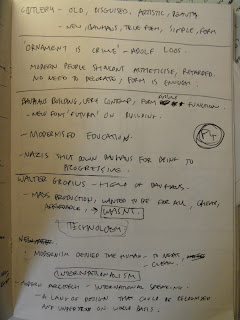 CUTLERY - OLD, DISGUISED, ARTISTIC, BEAUTY
- NEW, BAUHAUS, TRUE FORM, SIMPLE, FORM
'ORNAMENT IS CRIME' - ADOLF LOOS.
MODERN PEOPLE
NO NEED TO DECORATE, FORM IS ENOUGH
BAUHAUS BUILDING, VERY CONTEMP, FORM FUNCTION.
- NEW FONT 'FUTURA' ON BUILDING.
- MODERNISED EDUCATION.
- NAZIS SHUT DOWN BAUHAUS FOR BEING TO
PROGRESSIVE.
WALTER GROPIUS - OF BAUHAUS.
- MASS PRODUCTION, WANTED TO BE FOR ALL, CHEAP,
AFFORDABLE, → WASN'T.
TECHNOLOGY
- MODERNISM DEFINED THE HUMAN
INTERNATIONALISM
- INTERNATIONAL SPEAKING
- A LAND OF DESIGN THAT COULD BE RECOGNISED
AND UNDERSTOOD ON WORLD BASIS.